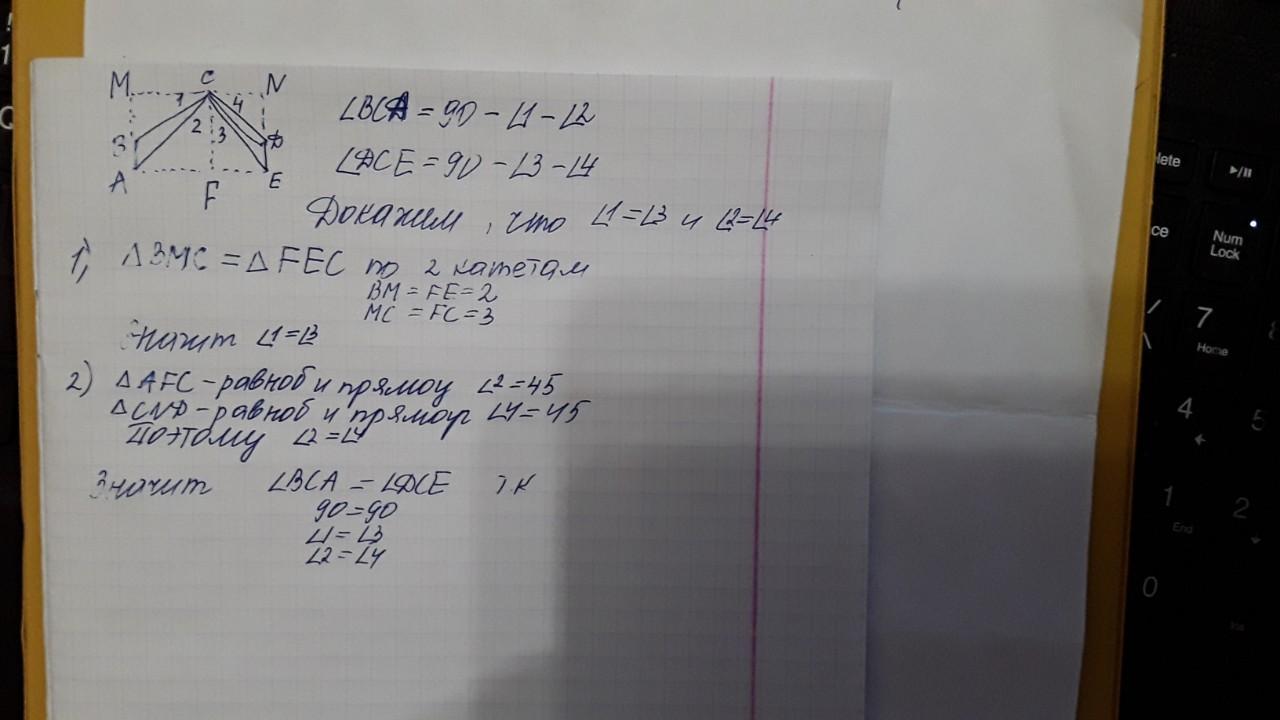 M C N
1 4
2 3
B D
A F E
∠BCA = 90 - ∠1 - ∠2
∠DCE = 90 - ∠3 - ∠4
Докажем, что ∠1=∠3 и ∠2=∠4
1) △BMC = △FEC по 2 катетам
BM = FE = 2
MC = FC = 3
Значит ∠1=∠3
2) △AFC - равноб и прямоуг ∠2=45
△CND - равноб и прямоуг ∠4=45
Поэтому ∠2=∠4
Значит ∠BCA = ∠DCE т.к
90=90
∠1=∠3
∠2=∠4
lete
Num
Lock
7
Home
4
5
1
End
2
0
Ins